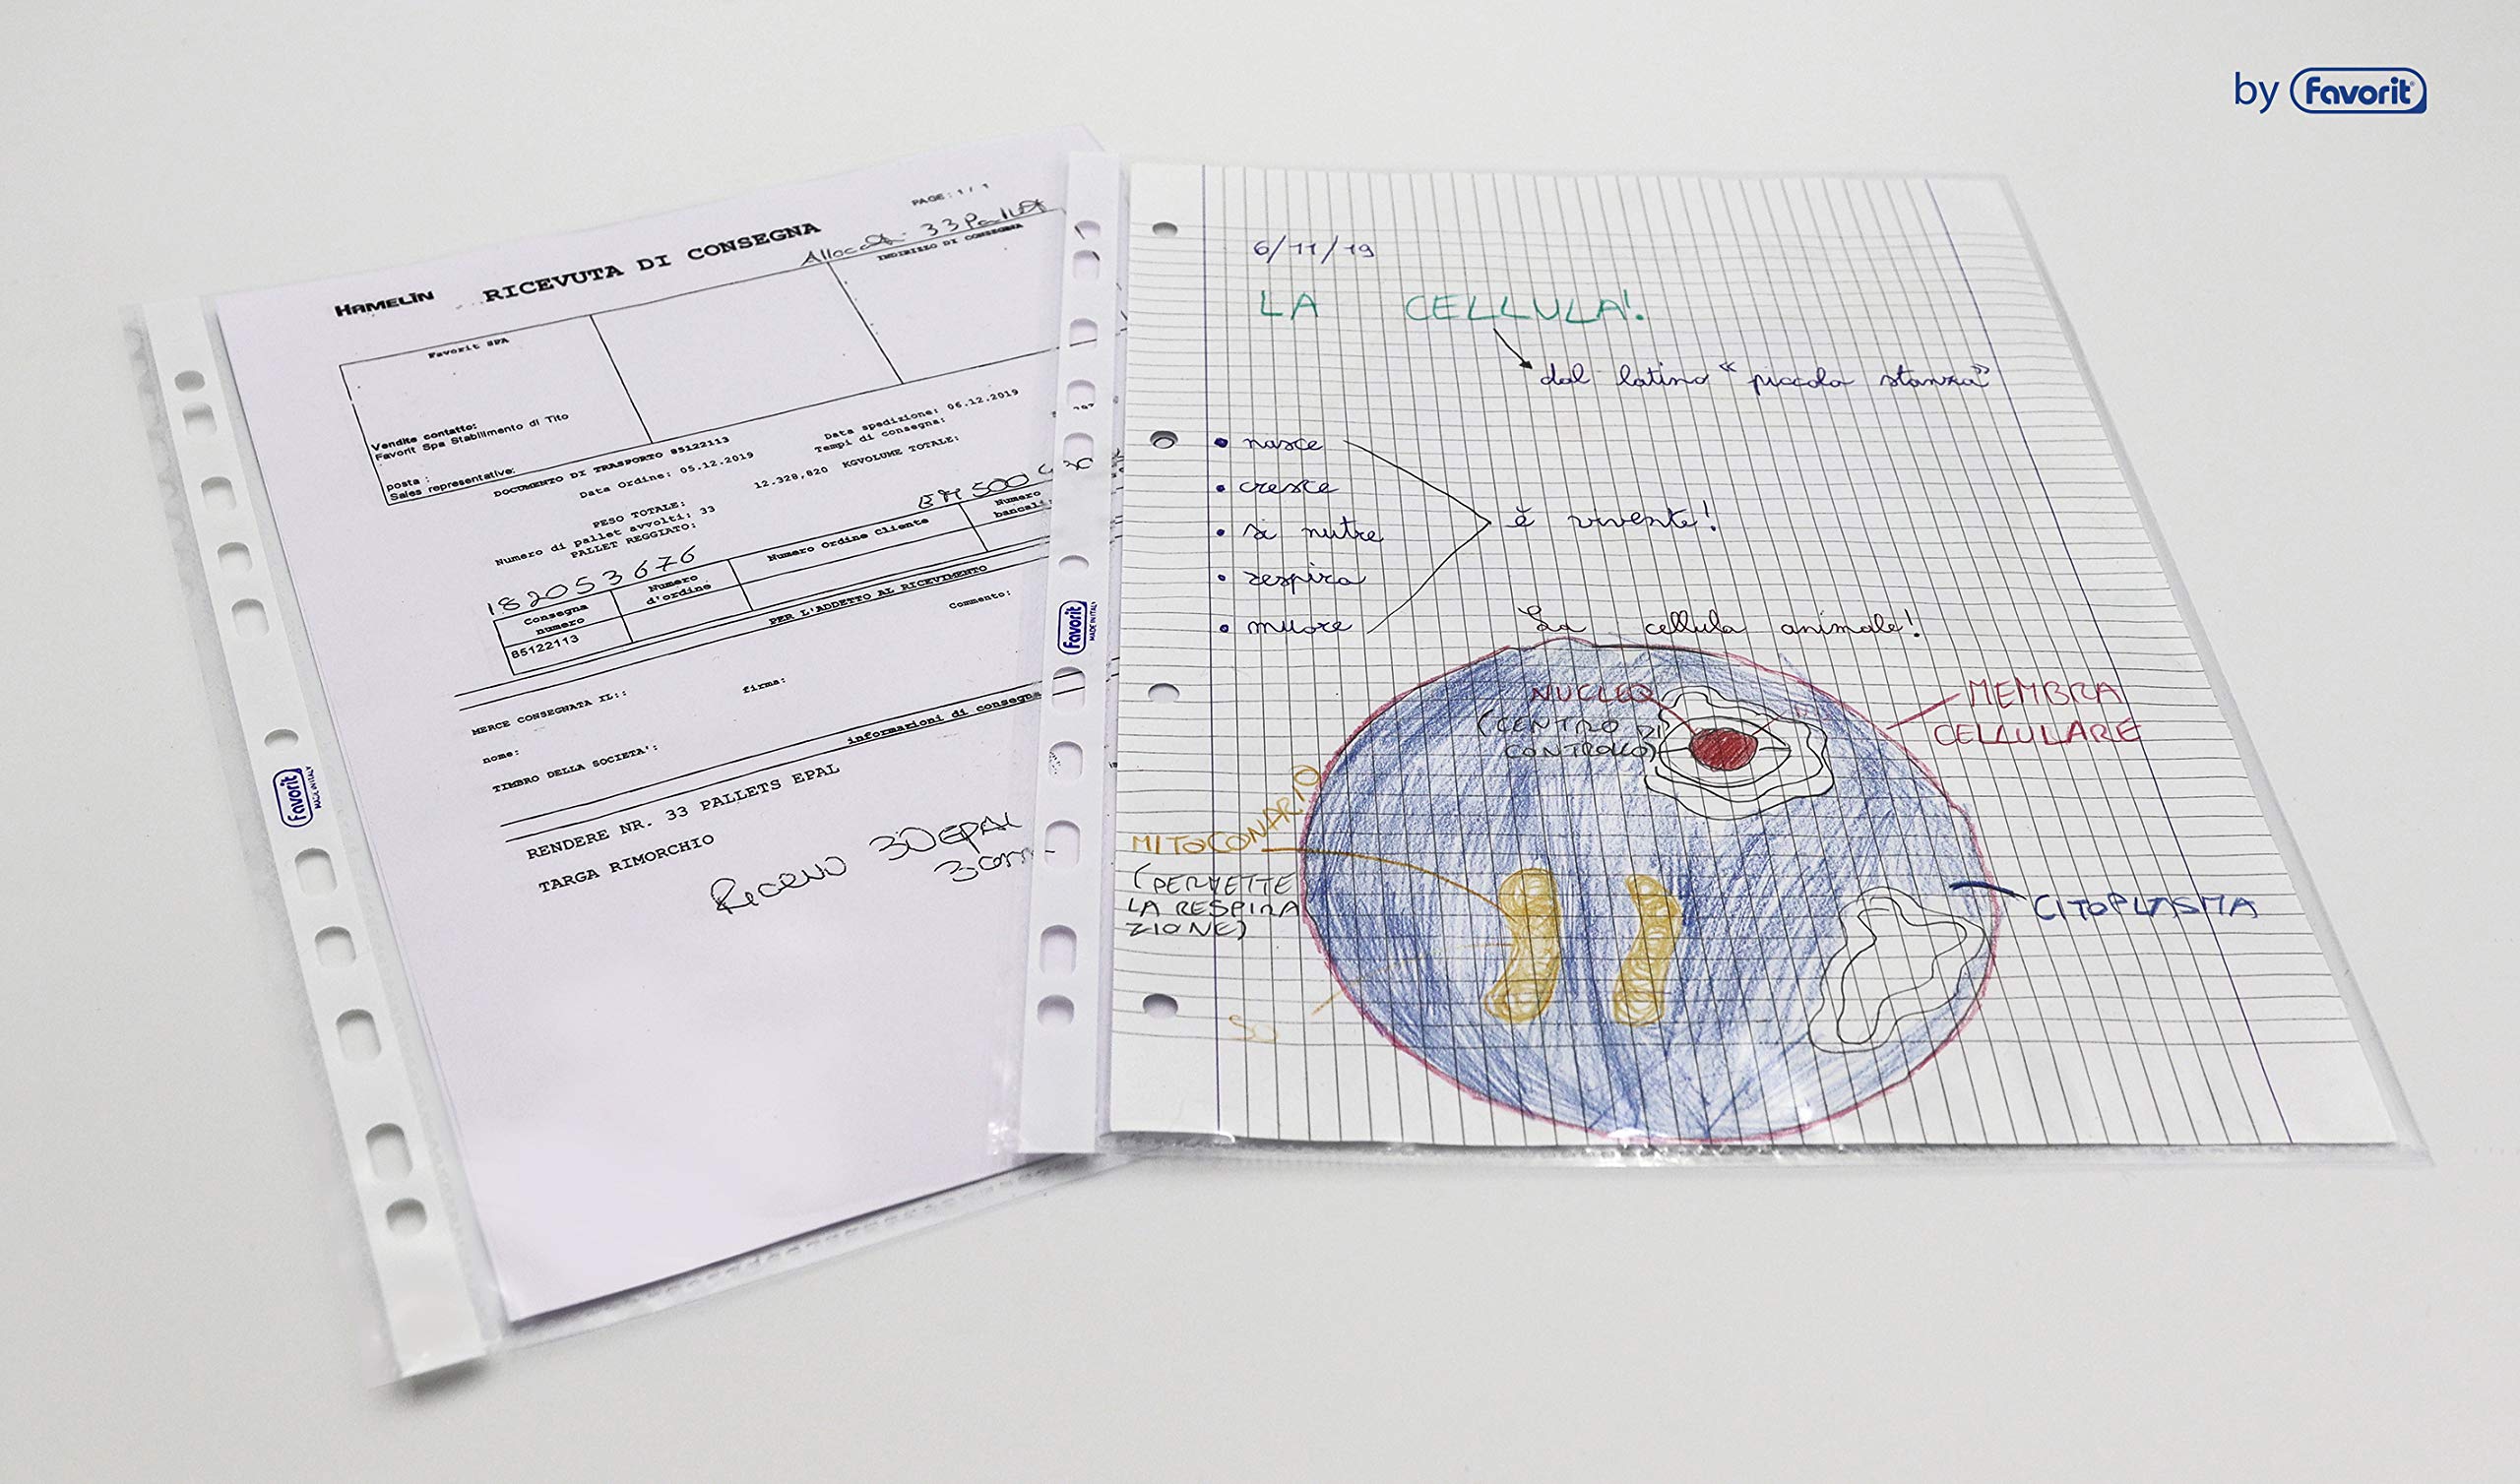 by Favorit
PAGE: 1/1
HAMELIN RICEVUTA DI CONSEGNA
33 Pallet
INDIRIZZO DI CONSEGNA
Favorit SPA
Vendite contatto:
Favorit Spa Stabilimento di Tito
posta :
Sales representative:
DOCUMENTO DI TRASPORTO 85122113
Data Ordine: 05.12.2019
Data spedizione: 06.12.2019
Tempi di consegna:
PESO TOTALE:
12.328,820 KGVOLUME TOTALE:
Numero di pallet avvolti: 33
PALLET REGGIATO:
182053676
Consegna numero
Numero d'ordine
Numero Ordine Cliente
Numero bancali:
85122113
PER L'ADDETTO AL RICEVIMENTO
Commento:
MERCE CONSEGNATA IL::
firma:
nome:
TIMBRO DELLA SOCIETA':
informazioni di consegna
RENDERE NR. 33 PALLETS EPAL
TARGA RIMORCHIO
30 EPAL
Favorit
MADE IN ITALY
Favorit
MADE IN ITALY
6/11/19
LA CELLULA!
dal latino “piccola stanza”
• nasce
• cresce
• si nutre
• respira
• muore
è vivente!
La cellula animale!
NUCLEO
(CENTRO DI
CONTROLLO)
MEMBRA
CELLULARE
MITOCONARIO
(PERMETTE
LA RESPIRA
ZIONE)
CITOPLASMA